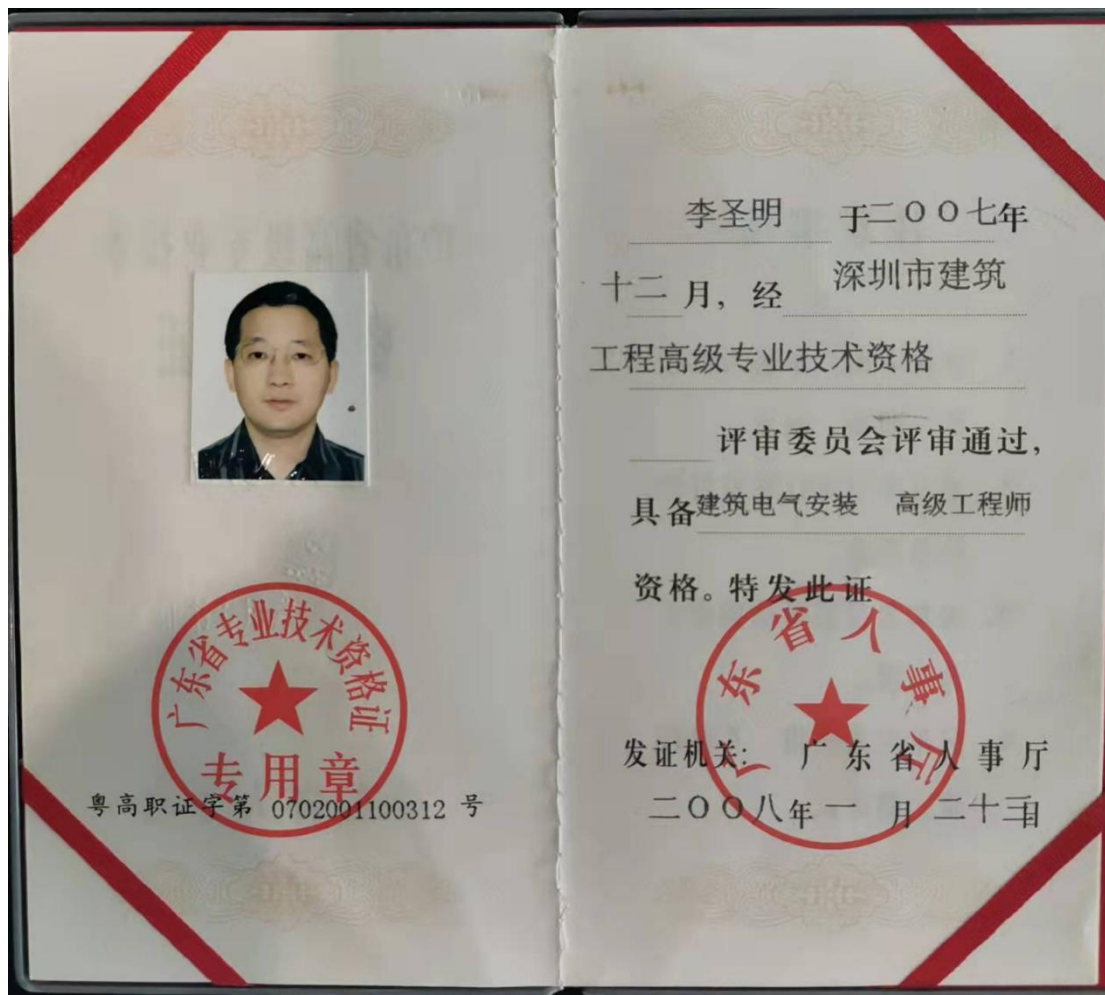 广东省专业技术资格证
专用章
粤高职证字第 0702001100312 号
李圣明 于二００七年
十二月，经 深圳市建筑
工程高级专业技术资格
评审委员会评审通过，
具备建筑电气安装 高级工程师
资格。特发此证
广东省人事厅
发证机关： 广东省人事厅
二００八年一月二十三日